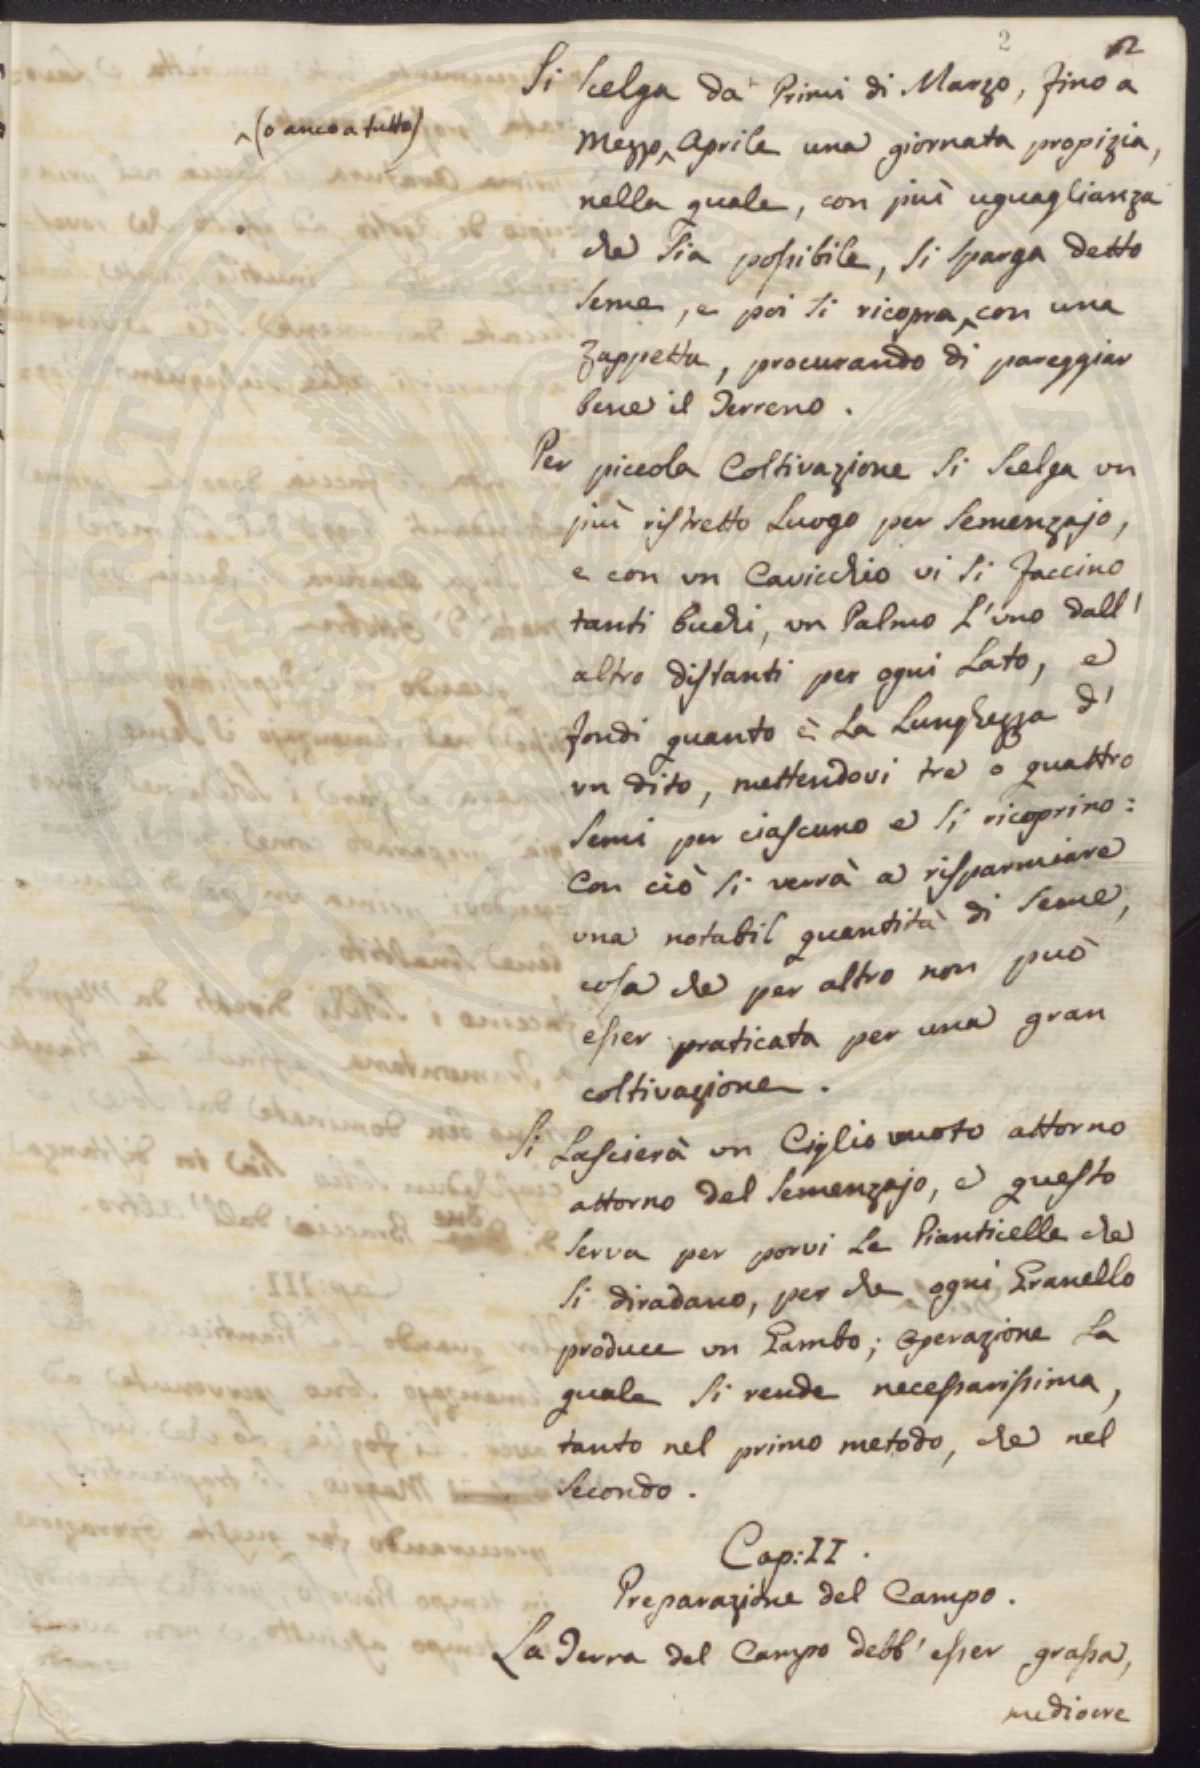 2 2
Si Scelga da Primi di Marzo, fino a
^(o anco a tutto)
Mezzo^Aprile una giornata propizia,
nella quale, con più uguaglianza
che Sia possibile, Si Sparga detto
Seme, e poi Si ricopra^con una
Zappetta, procurando di pareggiar
bene il Terreno.
Per piccola Coltivazione Si Scelga un
più ristretto Luogo per Semenzajo,
e con un Cavicchio vi Si faccino
tanti buchi, un Palmo L'uno dall'
altro distanti per ogni Lato, e
fondi quanto è La Lunghezza d'
un dito, mettendovi tre o quattro
Semi per ciascuno e Si ricoprino:
Con ciò Si verrà a risparmiare
una notabil quantità di Seme,
cosa che per altro non può
esser praticata per una gran
coltivazione.
Si Lascierà un Ciglio vuoto attorno
attorno del Semenzajo, e questo
Serva per porvi Le Pianticelle che
Si diradano, per che ogni Granello
produce un Gambo; Operazione La
quale Si rende necessarissima,
tanto nel primo metodo, che nel
Secondo.
Cap: II.
Preparazione del Campo.
La Terra del Campo debb'esser grassa,
mediocre